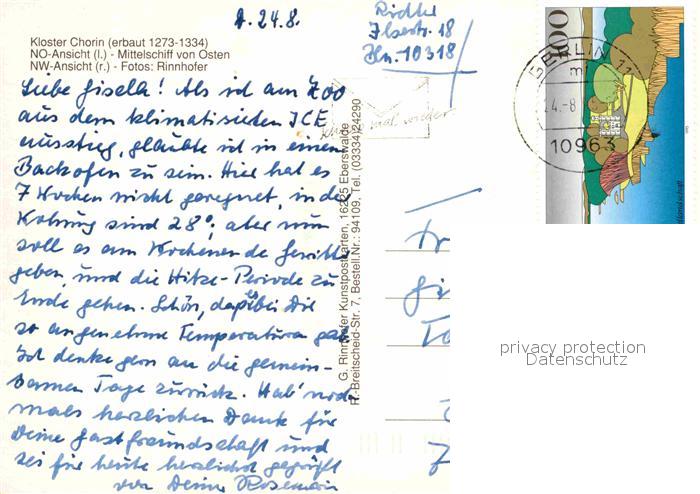 A. 24.8.
Kloster Chorin (erbaut 1273-1334)
NO-Ansicht (l.) - Mittelschiff von Osten
NW-Ansicht (r.) - Fotos: Rinnhofer
Liebe Gisela! Als ich am Zoo
aus dem klimatisierten ICE
ausstieg, glaubte ich in einem
Backofen zu sein. Hier hat es
7 Wochen nicht geregnet, in der
Wohnung sind 28°; aber nun
soll es am Wochenende Gewitter
geben, und die Hitze-Periode zu
Ende gehen. Schön, daß es bei Dir
so angenehme Temperaturen gab
Ich denke gern an die gemein-
samen Tage zurück. Hab' noch
mals herzlichen Dank für
Deine Gastfreundschaft und
sei für heute herzlichst gegrüßt
von Deiner Rosemarie
G. Rinnhofer Kunstpostkarten, 16225 Eberswalde
R.-Breitscheid-Str. 7, Bestell.Nr.: 94109, Tel. (03334) 24290
mal wieder
Ilsestr. 18
Bln. 10318
100
BERLIN 11
ml
24.-8
10963
privacy protection
Datenschutz